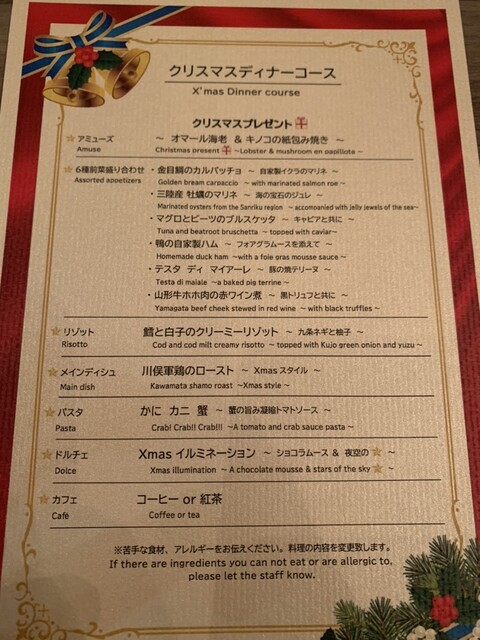 クリスマスディナーコース
X'mas Dinner course
クリスマスプレゼント
アミューズ ～ オマール海老 & キノコの紙包み焼き ～
Amuse Christmas present ~Lobster & mushroom en papillote~
6種前菜盛り合わせ ・金目鯛のカルパッチョ ～ 自家製イクラのマリネ ～
Assorted appetizers Golden bream carpaccio ~ with marinated salmon roe ~
・三陸産 牡蠣のマリネ ～ 海の宝石のジュレ ～
Marinated oysters from the Sanriku region ~ accompanied with jelly jewels of the sea~
・マグロとビーツのブルスケッタ ～ キャビアと共に ～
Tuna and beatroot bruschetta ~ topped with caviar~
・鴨の自家製ハム ～ フォアグラムースを添えて ～
Homemade duck ham ~with a foie gras mousse sauce ~
・テスタ ディ マイアーレ ～ 豚の焼テリーヌ ～
Testa di maiale ~a baked pig terrine ~
・山形牛ホホ肉の赤ワイン煮 ～ 黒トリュフと共に ～
Yamagata beef cheek stewed in red wine ~ with black truffles ~
リゾット 鱈と白子のクリーミーリゾット ～ 九条ネギと柚子 ～
Risotto Cod and cod milt creamy risotto ~ topped with Kujo green onion and yuzu ~
メインディシュ 川俣軍鶏のロースト ～ Xmas スタイル ～
Main dish Kawamata shamo roast ~Xmas style ~
パスタ かに カニ 蟹 ～ 蟹の旨み凝縮トマトソース ～
Pasta Crab! Crab!! Crab!!! ~A tomato and crab sauce pasta ~
ドルチェ Xmas イルミネーション ～ ショコラムース & 夜空の ～
Dolce Xmas illumination ~ A chocolate mousse & stars of the sky ~
カフェ コーヒー or 紅茶
Café Coffee or tea
※苦手な食材、アレルギーをお伝えください。料理の内容を変更致します。
If there are ingredients you can not eat or are allergic to,
please let the staff know.